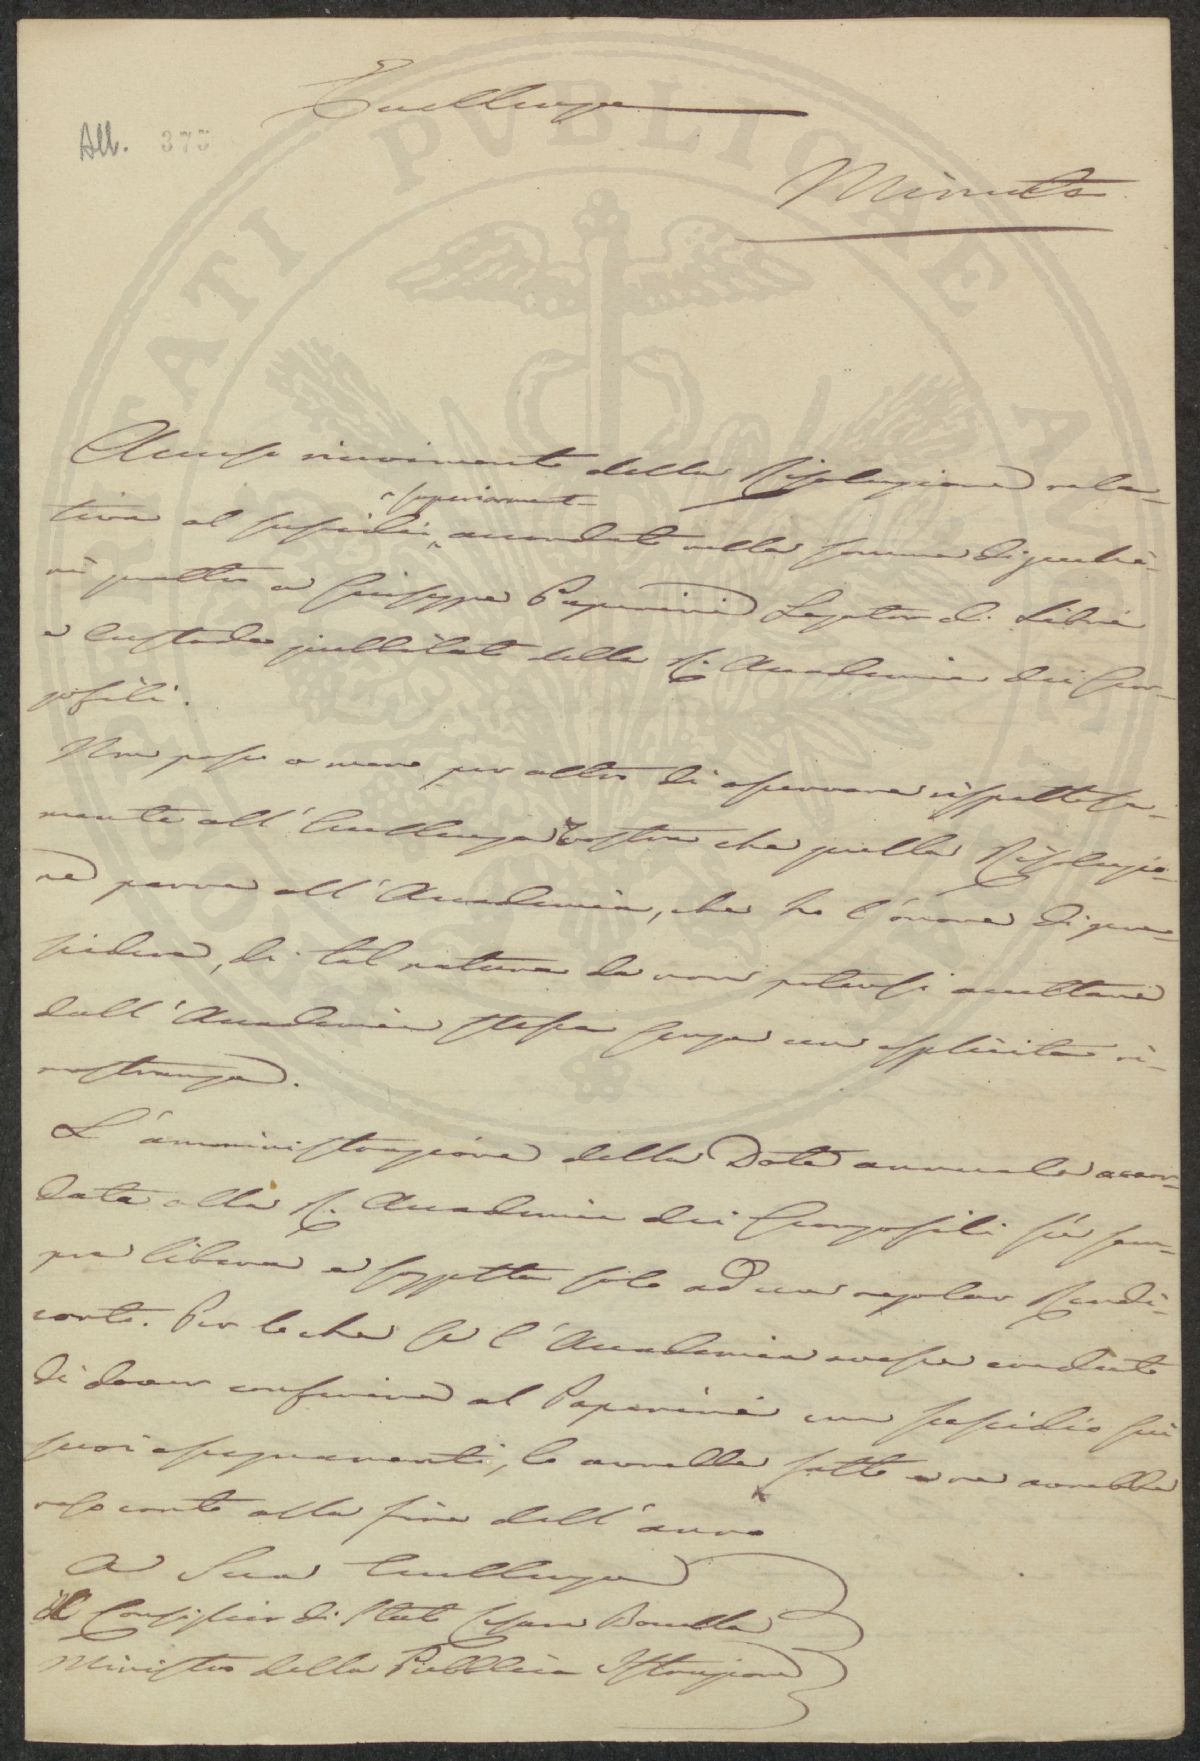 Eccellenza
All. 375
Minuta
PROSPERITATI PVBLICAE AVGENDAE
Accuso ricevimento della Risoluzione rela-
superiorment-
tiva al sussidio accordato nella somma di zecchi-
ni quattro a Giuseppe Paperini Legator di Libri
e Custode giubbilato della R. Accademia dei Geor-
gofili.
Non posso a meno per altro di osservare rispettosa-
mente all'Eccellenza Vostra che quella Risoluzio-
ne parve all'Accademia, che ho l'onore di pre-
siedere, di tal natura da non potersi accettare
dall'Accademia stessa senza un esplicita ri-
mostranza.
L'amministrazione della Dote annuale accor-
data alla R. Accademia dei Georgofili fù sem-
pre libera e soggetta solo ad un regolar Rendi-
conto. Per lo che se l'Accademia avesse creduto
di dover conferire al Paperini un sussidio sui
suoi assegnamenti, lo avrebbe fatto e ne avrebbe
reso conto alla fine dell'anno
A Sua Eccellenza
il Consiglier di Stato Cesare Boccella
Ministro della Pubblica Istruzione